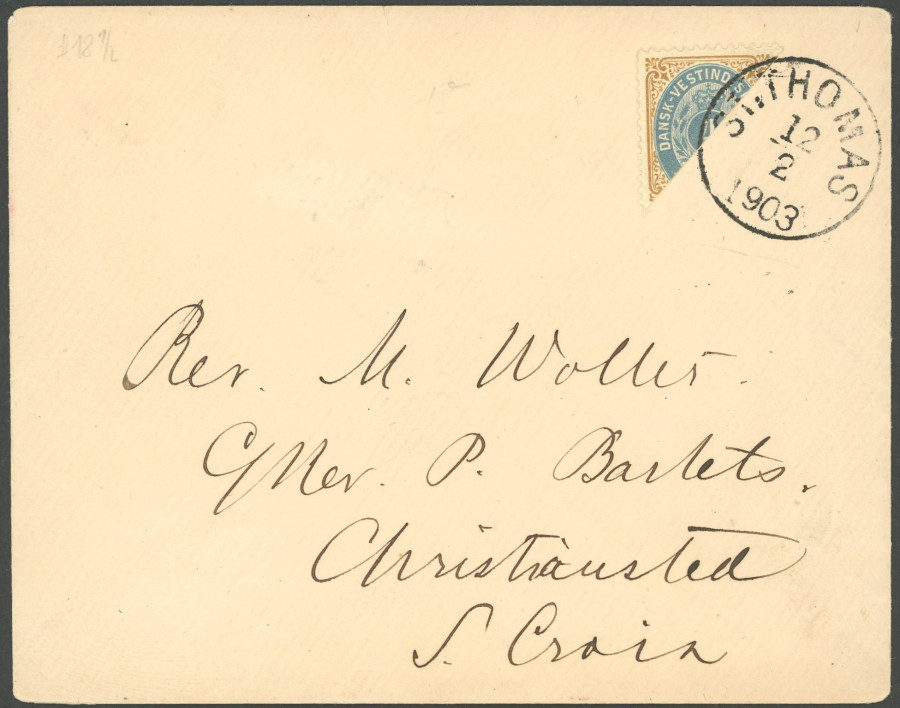 $18 1/2
DANSK-VESTINDIS
ST. THOMAS
12
2
1903
Rev. M. Woller.
P. Bartets.
Christiansted
S. Croix